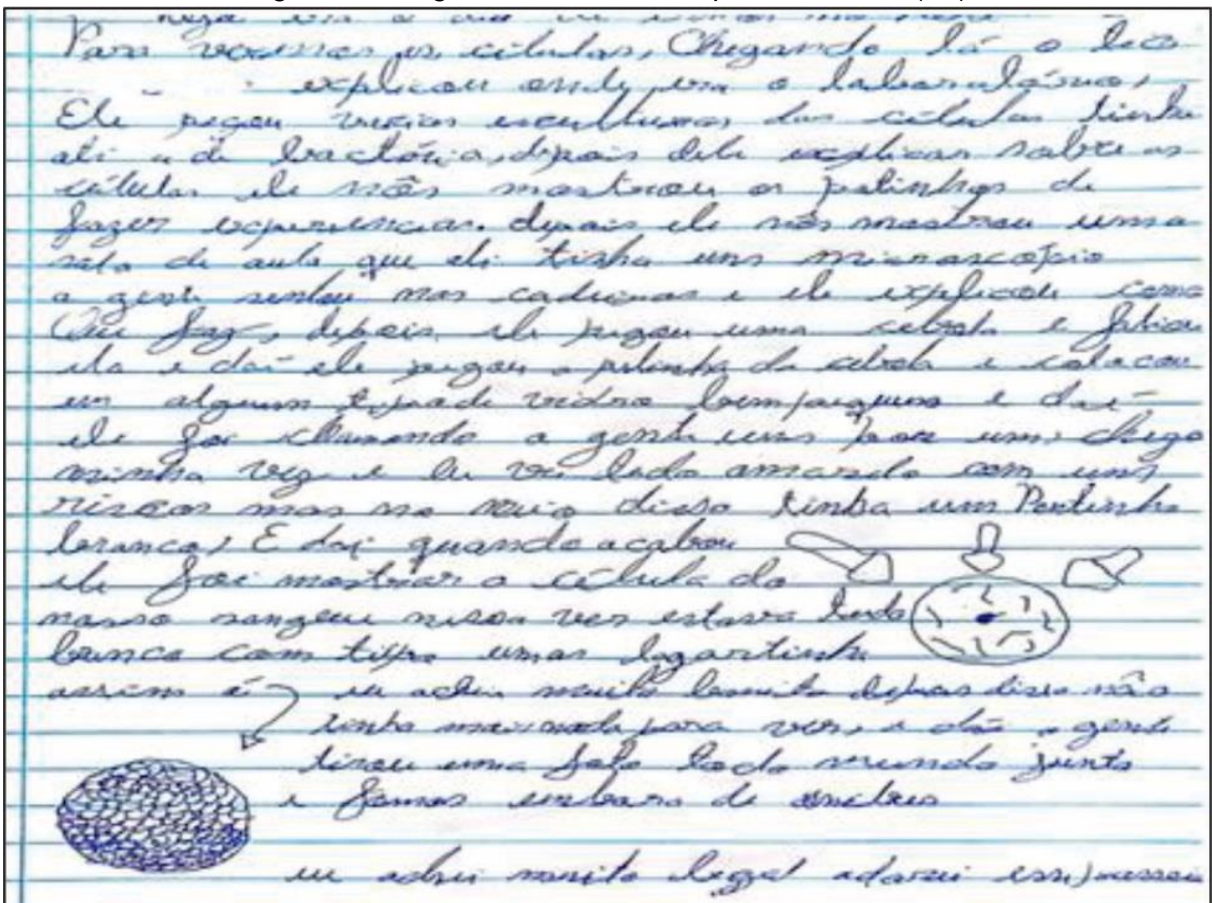 Para vermos as células, Chegando lá o
explicou onde era o
Ele pegou varias esculturas das células tinha
ali a de bactéria, depois dele explicar sobre as
células ele nós mostrou os potinhos de
fazer experiencias. depois ele nós mostrou uma
sala de aula que ali tinha uns
a gente sentou nas cadeiras e ele explicou como
Que faz, depois ele pegou uma cebola e
ela e daí ele pegou a da cebola e colocou
em algum tipo de vidro bem e daí
ele foi chamando a gente uns por um, chego
minha vez e Eu vi todo com uns
riscos mas no meio disso tinha um Pontinho
branco, E daí quando acabou
ele foi mostrar a célula do
nosso ver estava todo
branco com tipo umas
assim é eu achei muito bonito depois disso não
tinha mais nada para ver, e daí a gente
tirou uma foto todo mundo junto
e fomos embora de
eu achei muito legal adorei esse